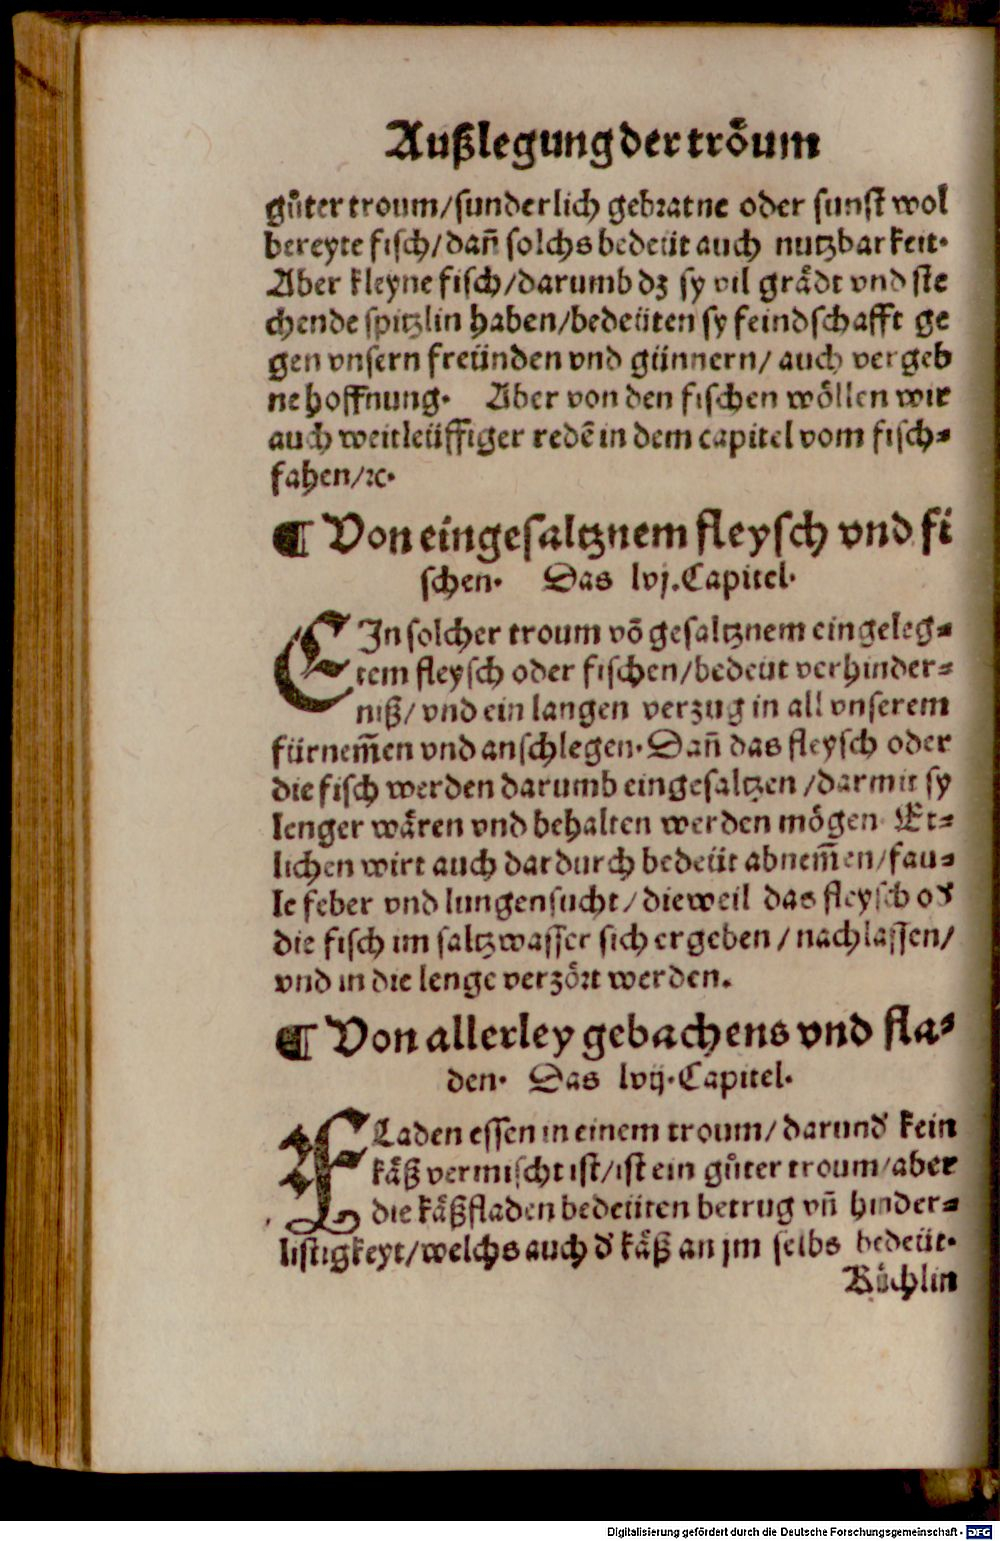 Außlegung der tröum
gůter troum/sunderlich gebratne oder sunst wol
bereyte fisch/dañ solchs bedeüt auch nutzbarkeit.
Aber kleyne fisch/darumb dz sy vil grådt vnd ste
chende spitzlin haben/bedeüten sy feindschafft ge
gen vnsern freünden vnd günnern/ auch vergeb
ne hoffnung. Aber von den fischen wöllen wir
auch weitleüffiger redē in dem capitel vom fisch⸗
fahen/ꝛc.
¶ Von eingesaltznem fleysch vnd fi
schen. Das lvj.Capitel.
EJn solcher troum võ gesaltznem eingeleg⸗
tem fleysch oder fischen/bedeüt verhinder⸗
niß/ vnd ein langen verzug in all vnserem
fürnem̃en vnd anschlegen. Dañ das fleysch oder
die fisch werden darumb eingesaltzen /darmit sy
lenger wåren vnd behalten werden mögen Et⸗
lichen wirt auch dardurch bedeüt abnem̃en/fau⸗
le feber vnd lungensucht/dieweil das fleysch od̕
die fisch im saltzwasser sich ergeben/nachlassen/
vnd in die lenge verzört werden.
¶ Von allerley gebachens vnd fla⸗
den. Das lvij.Capitel.
FLaden essen in einem troum/darund̕ kein
kåß vermischt ist/ist ein gůter troum/aber
die kåßfladen bedeüten betrug vñ hinder⸗
listigkeyt/welchs auch d̕ kåß an jm selbs bedeüt.
Kůchlin
Digitalisierung gefördert durch die Deutsche Forschungsgemeinschaft - DFG